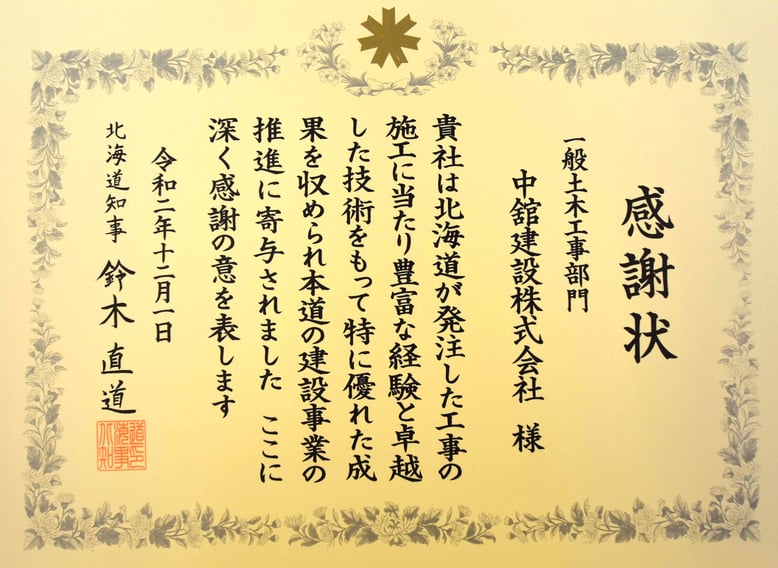 感謝状
一般土木工事部門
中舘建設株式会社 様
貴社は北海道が発注した工事の
施工に当たり豊富な経験と卓越
した技術をもって特に優れた成
果を収められ本道の建設事業の
推進に寄与されました ここに
深く感謝の意を表します
令和二年十二月一日
北海道知事 鈴木 直道